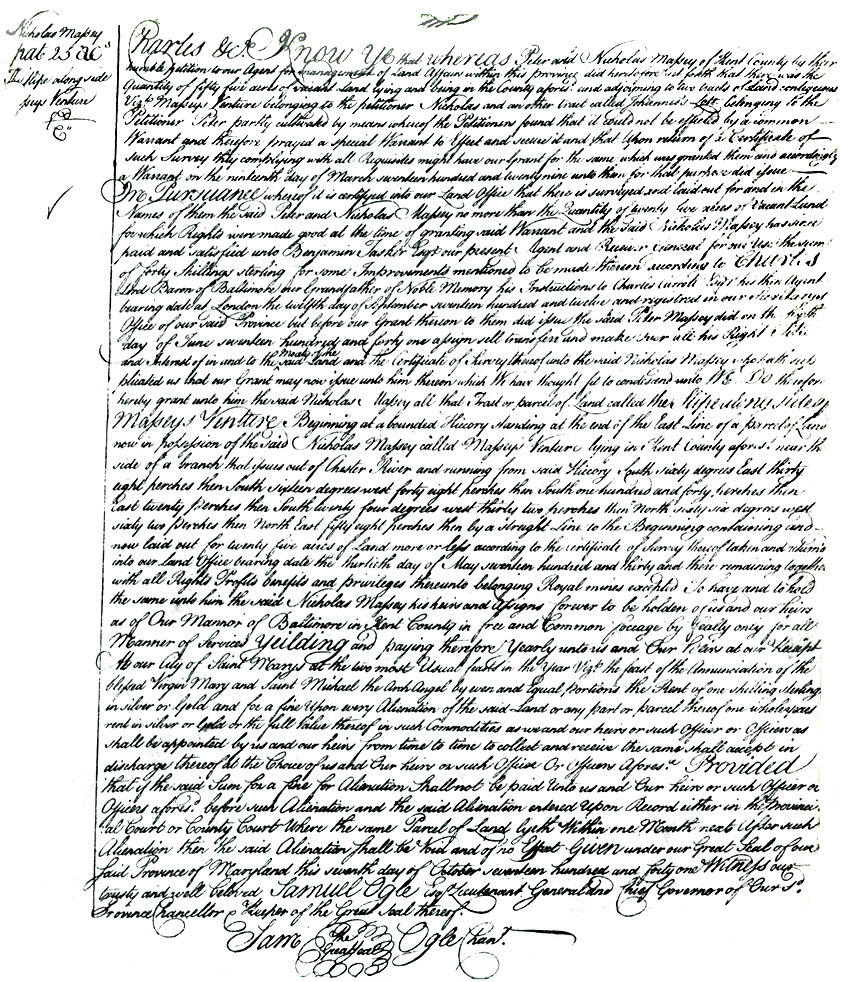 Nicholas Massey
pat 25 acs
The slipe along side
seys Venture
Exd
Charles &c. Know Ye that whereas Peter and Nicholas Massey of Kent County by their
humble petition to our Agent for management of Land Affairs within this province did heretofore set forth that there was the
Quantity of fifty five acres of vacant Land lying and being in the County aforsd. and adjoyning to two tracts of Land contiguous
Vizt. Masseys Venture belonging to the petitioner Nicholas and an other tract called Johannes's Lott belonging to the
Petitioner Peter partly cultivated by means whereof the Petitioners found that it could not be effected by a common
Warrant and therefore prayed a special Warrant to Effect and secure it and that upon return of a Certificate of
such Survey they complying with all Requisites might have our Grant for the same which was granted them and accordingly
a Warrant on the ninteenth day of March seventeen hundred and twenty nine unto them for that purpose did issue
In Pursuance whereof it is certified into our Land Office that there is surveyed and laid out for and in the
Names of them the said Peter and Nicholas Massey no more than the Quantity of twenty five acres of Vacant Land
for which Rights were made good at the time of granting said Warrant and the said Nicholas Massey has since
paid and satisfied unto Benjamin Tasker Esqr our present Agent and Receiver General for our Use the sum
of forty Shillings sterling for some Improvements mentioned to be made thereon according to Charles
Lord Baron of Baltimore our Grandfather of Noble Memory his Instructions to Charles Carroll Esqr his then Agent
bearing date at London the twelfth day of September seventeen hundred and twelve and registred in our Secretarys
Office of our said Province but before our Grant thereon to them did issue the said Peter Massey did on the
day of June seventeen hundred and forty one assign sell transfer and make over all his Right Title
and Interest of in and to the said Land and the Certificate of Survey thereof unto the said Nicholas Massey who hath sup
plicated us that our Grant may now issue unto him thereon which We have thought fit to condescend unto We Do therefore
hereby grant unto him the said Nicholas Massey all that Tract or parcel of Land called the slipe along side of
Masseys Venture Beginning at a bounded Hiccory standing at the end of the East Line of a parcel of Land
now in possession of the said Nicholas Massey called Masseys Venture lying in Kent County aforsd. near the
side of a branch that issues out of Chester River and running from said Hiccory South sixty degrees East thirty
eight perches then South sixteen degrees west forty eight perches then South one hundred and forty perches then
East twenty perches then South twenty four degrees west thirty two perches then North sixty six degrees west
sixty two perches then North East fifty eight perches then by a straight Line to the Beginning containing and
now laid out for twenty five acres of Land more or less according to the Certificate of Survey thereof taken and return'd
into our Land Office bearing date the thirtieth day of May seventeen hundred and thirty and there remaining together
with all Rights Profits benefits and privileges thereunto belonging Royal mines excepted To have and to hold
the same unto him the said Nicholas Massey his heirs and Assigns forever to be holden of us and our heirs
as of Our Mannor of Baltimore in Kent County in free and Common soccage by fealty only for all
Manner of Services Yeilding and paying therefore Yearly unto us and Our heirs at our Receipt
At our City of Saint Marys at the two most Usual feasts in the Year Vizt. the feast of the Annunciation of the
blessed Virgin Mary and Saint Michael the Arch Angel by even and Equal portions the Rent of one Shilling sterling
in silver or Gold and for a fine Upon every Alienation of the said Land or any part or parcel thereof one whole years
rent in silver or Gold or the full Value thereof in such Commodities as we and our heirs or such Officer or Officers as
shall be appointed by us and our heirs from time to time to collect and receive the same shall accept in
discharge thereof at the Choice of us and Our heirs or such Officer Or Officers Aforesd. Provided
that if the said Sum for a fine for Alienation Shall not be paid Unto us and Our heirs or such Officer or
Officers aforesd. before such Alienation and the said Alienation entered Upon Record either in the Provinci
al Court or County Court Where the same Parcel of Land lyeth Within one Month next After such
Alienation then the said Alienation shall be Void and of no Effect Given under our Great Seal of our
said Province of Maryland this seventh day of October seventeen hundred and forty one Witness our
trusty and well beloved Samuel Ogle Esqr. Lieutenant General and Chief Governor of Our sd.
Province Chancellor & Keeper of the Great Seal thereof.
Sam Ogle Chanr.
The
Great Seal